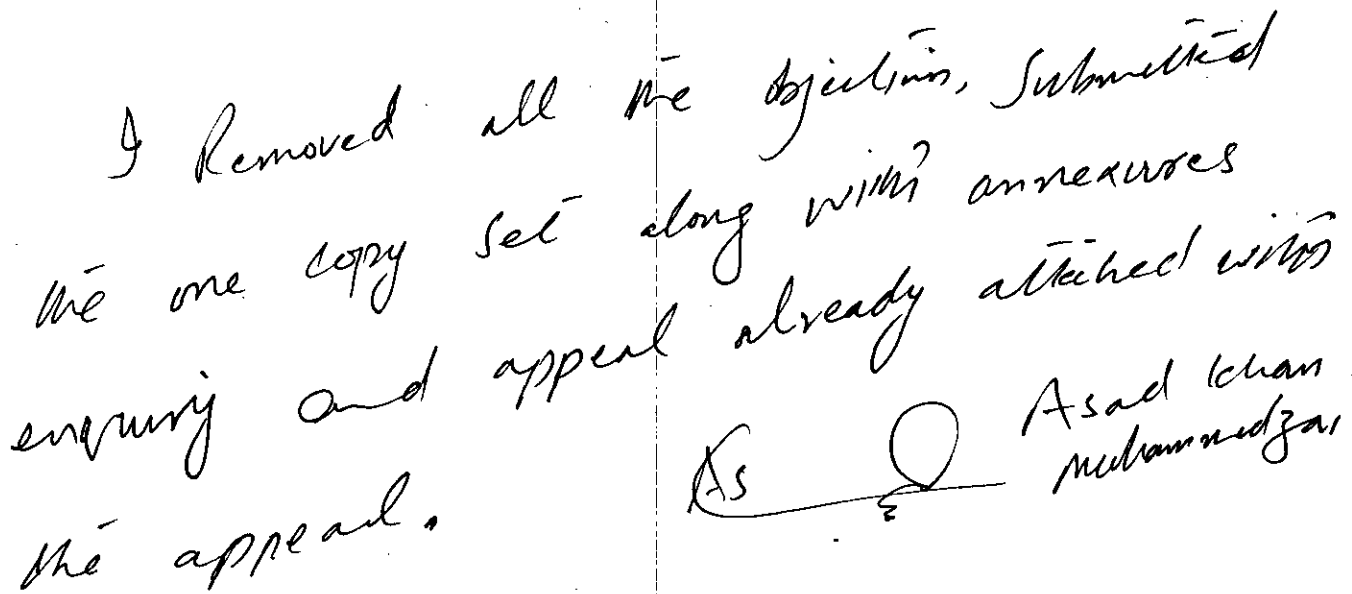 I Removed all the objections, Submitted
the one copy set along with annexures
enquiry and appeal already attached with
the appeal.
As
Asad Khan
Muhammadzai